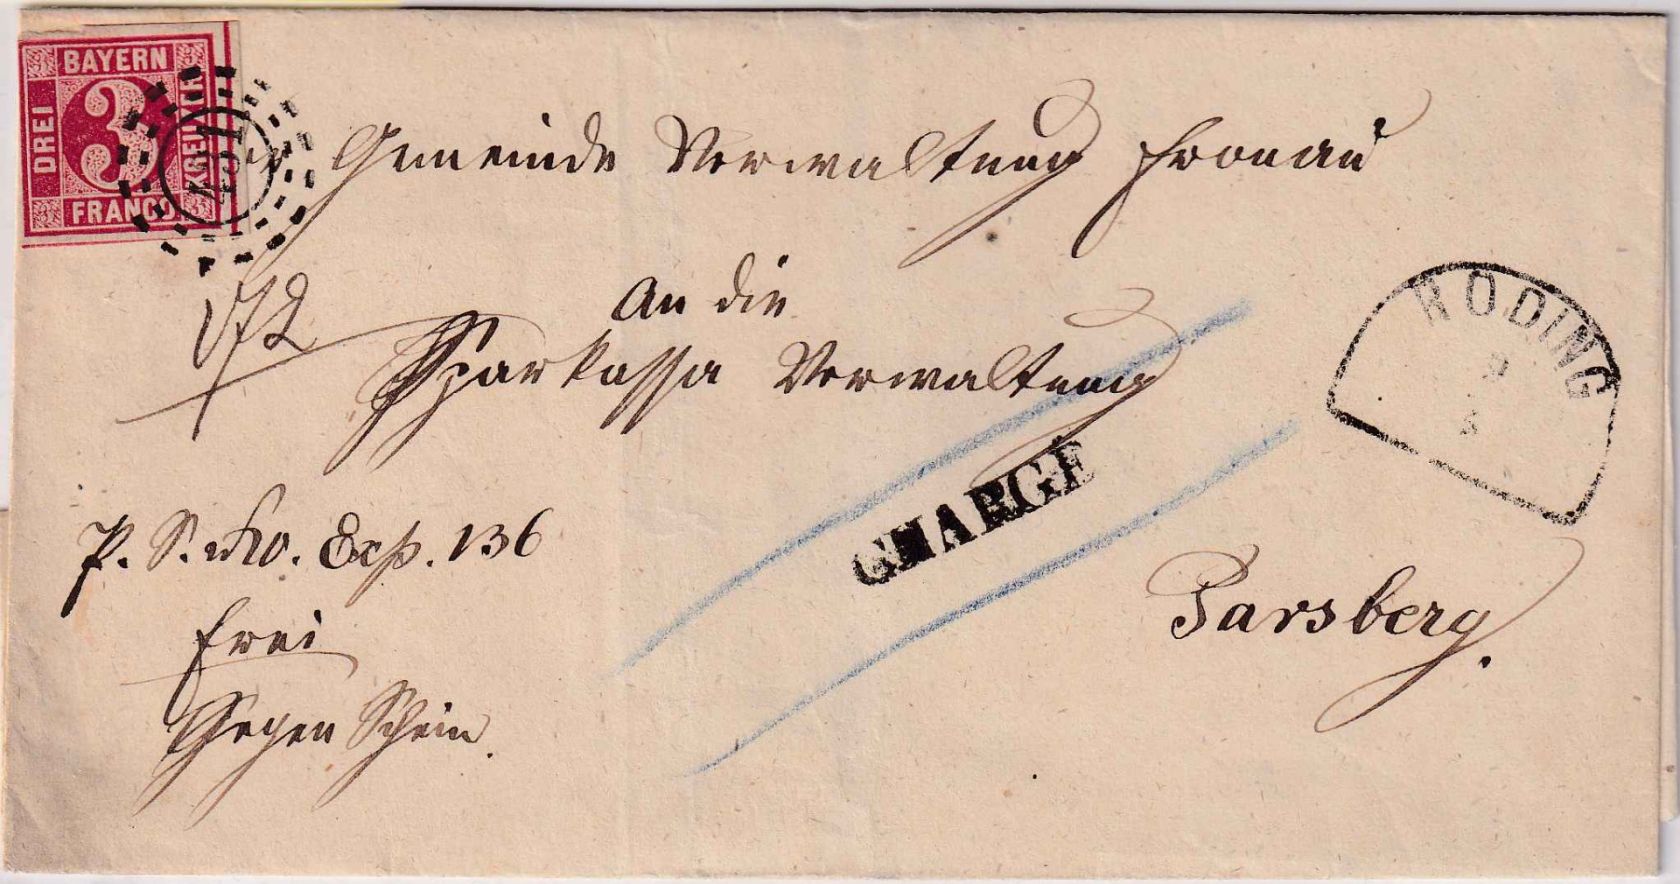 BAYERN
DREI
3
KREUZER
FRANCO
451
Gemeinde Verwaltung Fronau
172
An die
Sparkassa Verwaltung
RODING
CHARGÉ
P. S. No. Exp. 136
frei
Gegen Schein.
Parsberg.